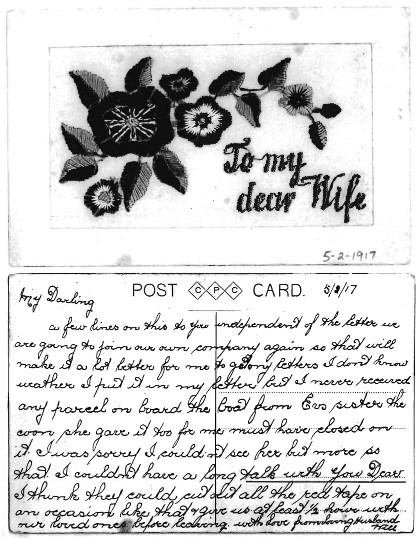 To my
dear Wife
5-2-1917
POST CPC CARD. 5/2/17
My Darling
a few lines on this to you independent of the letter we
are going to join our own company again so that will
make it a lot better for me to get my letters I don't know
weather I put it in my letter but I never received
any parcel on board the boat from Evs sister the
coon she gave it too for me must have closed on
it. I was sorry I could'nt see her but more so
that I couldn't have a long talk with You Dear
I think they could cut out all the red tape on
an occasion like that & give us at least ½ hour with
our loved ones before leaving. with love from loving Husband